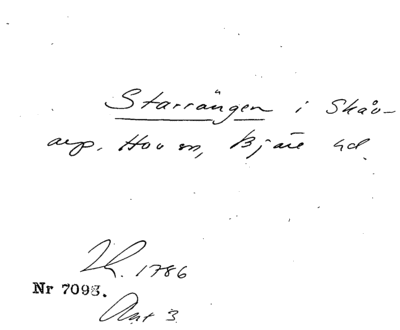 Starrängen i Skåv-
arp. Hov sn, Bjäre hd.
Lh. 1786
Nr 7093.
Ant 3